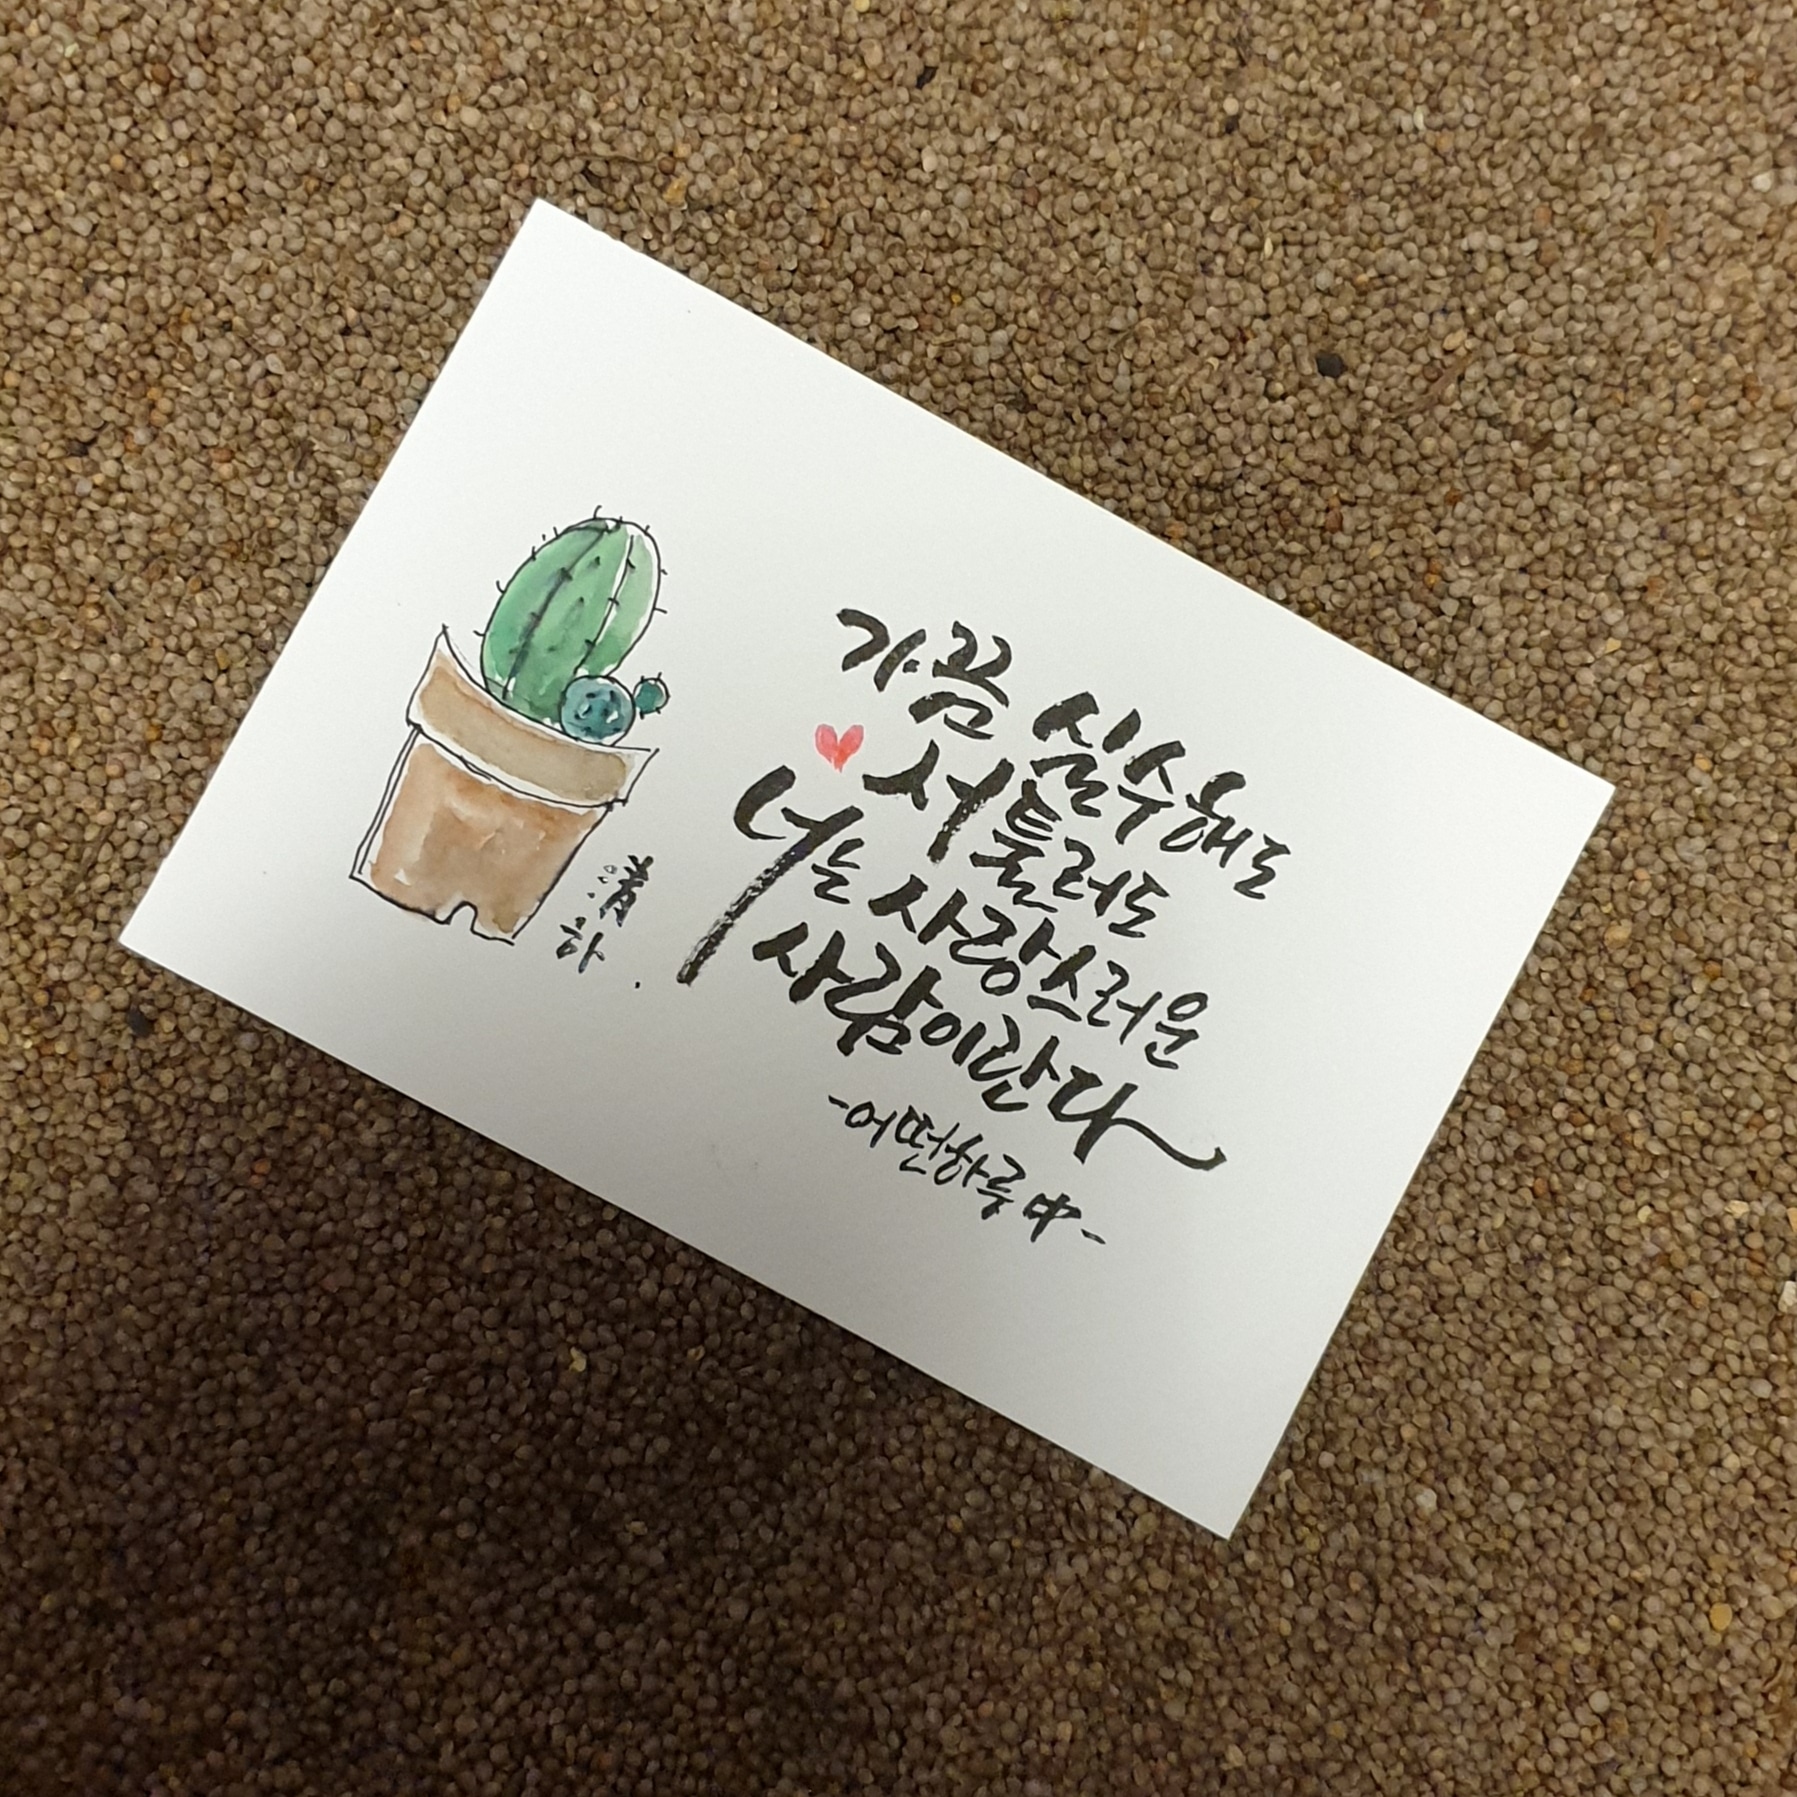 가끔 실수해도
서툴러도
너는 사랑스러운
사람이란다
-어떤하루 中-
淸
하